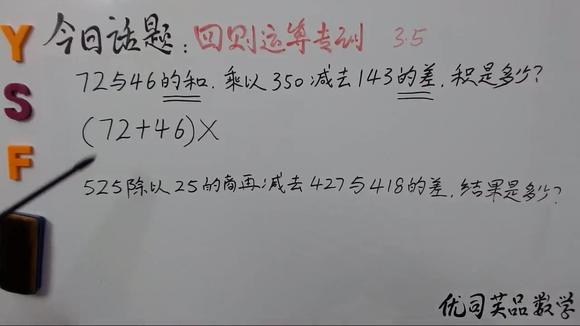 今日话题：四则运算专训 3.5
72与46的和，乘以350减去143的差，积是多少？
(72+46)×
525除以25的商再减去427与418的差，结果是多少？
优司芙品数学
Y
S
F